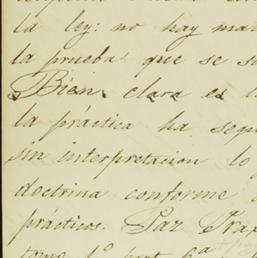 la ley: no hay
la prueba que se
Bien clara es
la práctica ha
sin interpretacion lo
doctrina conforme
prácticos. Paz
tomo 1º part 6ª